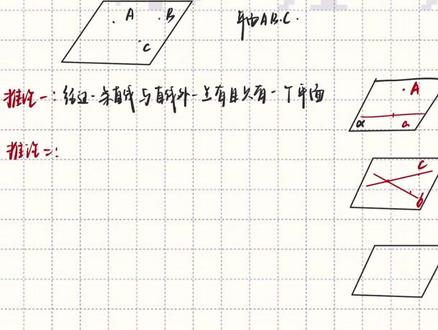 A B
平面ABC.
C
推论一:经过一条直线与直线外一点有且只有一个平面
A
α a
推论二:
c
b